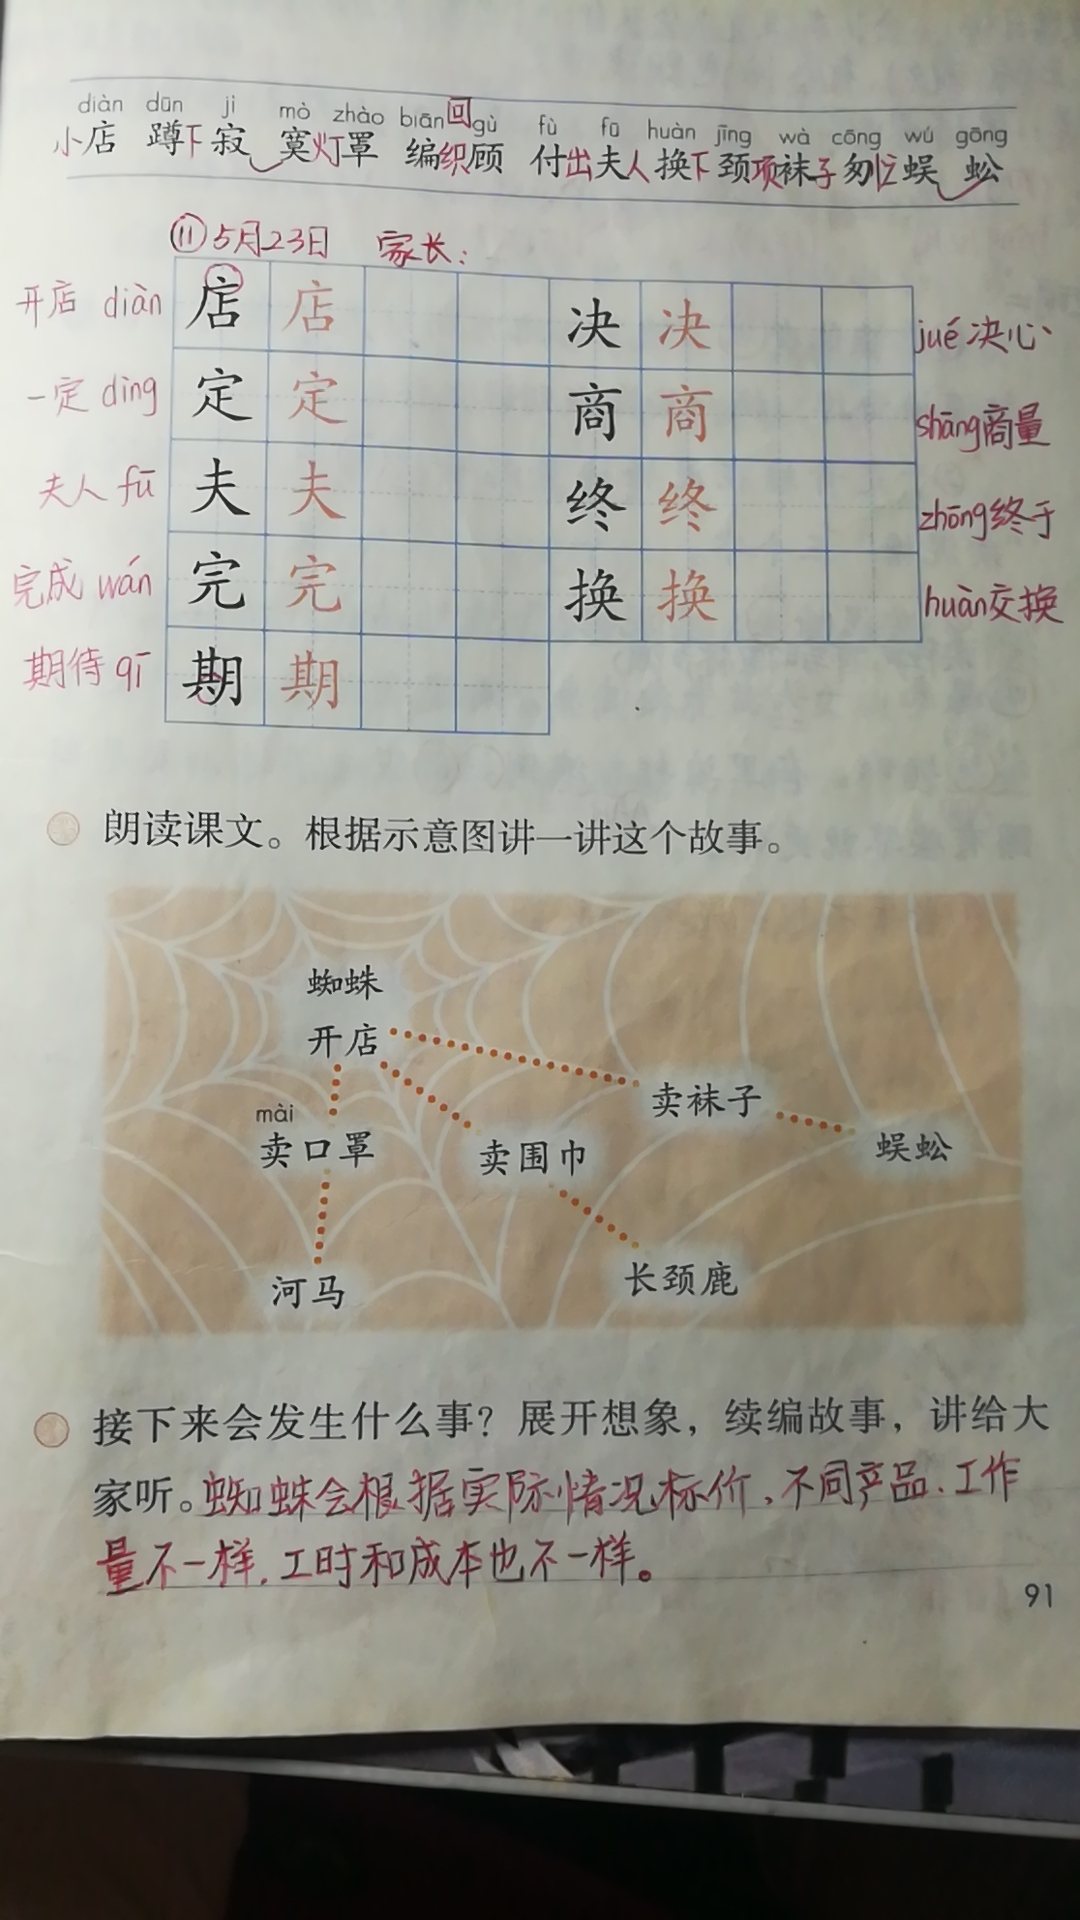 diàn dūn jì mò zhào biān gù fù fū huàn jǐng wà cōng wú gōng
小店 蹲下 寂寞 灯罩 编织 回顾 付出 夫人 换下 颈项 袜子 匆忙 蜈蚣
⑪ 5月23日 家长：
开店 diàn 店 店 决 决 jué 决心
一定 dìng 定 定 商 商 shāng 商量
夫人 fū 夫 夫 终 终 zhōng 终于
完成 wán 完 完 换 换 huàn 交换
期待 qī 期 期
朗读课文。根据示意图讲一讲这个故事。
蜘蛛
开店
卖袜子
mài
卖口罩 卖围巾 蜈蚣
河马 长颈鹿
接下来会发生什么事？展开想象，续编故事，讲给大
家听。蜘蛛会根据实际情况标价，不同产品、工作
量不一样，工时和成本也不一样。
91